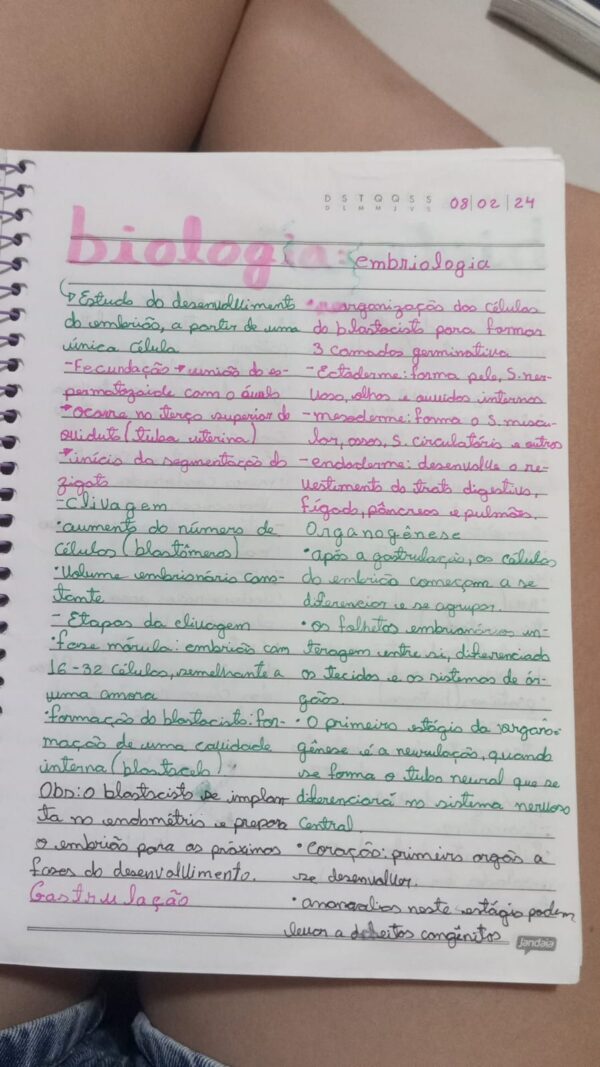 D S T Q Q S S
D L M M J V S
08|02|24
biologia: embriologia
↳ Estudo do desenvolvimento
do embrião, a partir de uma
única célula
- Fecundação → união do es-
permatozoide com o óvulo
→ ocorre no terço superior do
oviduto (tuba uterina)
→ início da segmentação do
zigoto
- Clivagem
• aumento do número de
células (blastômeros)
• Volume embrionário cons-
tante
- Etapas da clivagem
• fase mórula: embrião com
16-32 células, semelhante a
uma amora
• formação do blastocisto: for-
mação de uma cavidade
interna (blastocele)
Obs: O blastocisto se implan-
ta no endométrio e prepara
o embrião para as próximas
fases do desenvolvimento.
Gastrulação
• reorganização das células
do blastocisto para formar
3 camadas germinativa
- Ectoderme: forma pele, S. ner-
voso, olhos e ouvidos internos
- mesoderme: forma o S. muscu-
lar, ossos, S. circulatório e outros
- endoderme: desenvolve o re-
vestimento do trato digestivo,
fígado, pâncreas e pulmões.
Organogênese
• após a gastrulação, as células
do embrião começam a se
diferenciar e se agrupar.
• os folhetos embrionários in-
teragem entre si, diferenciado
os tecidos e os sistemas de ór-
gãos.
• O primeiro estágio da organo-
gênese é a neurulação, quando
se forma o tubo neural que se
diferenciará no sistema nervoso
Central.
• Coração: primeiro orgão a
se desenvolver.
• anomalias neste estágio podem
levar a defeitos congênitos
jandaia